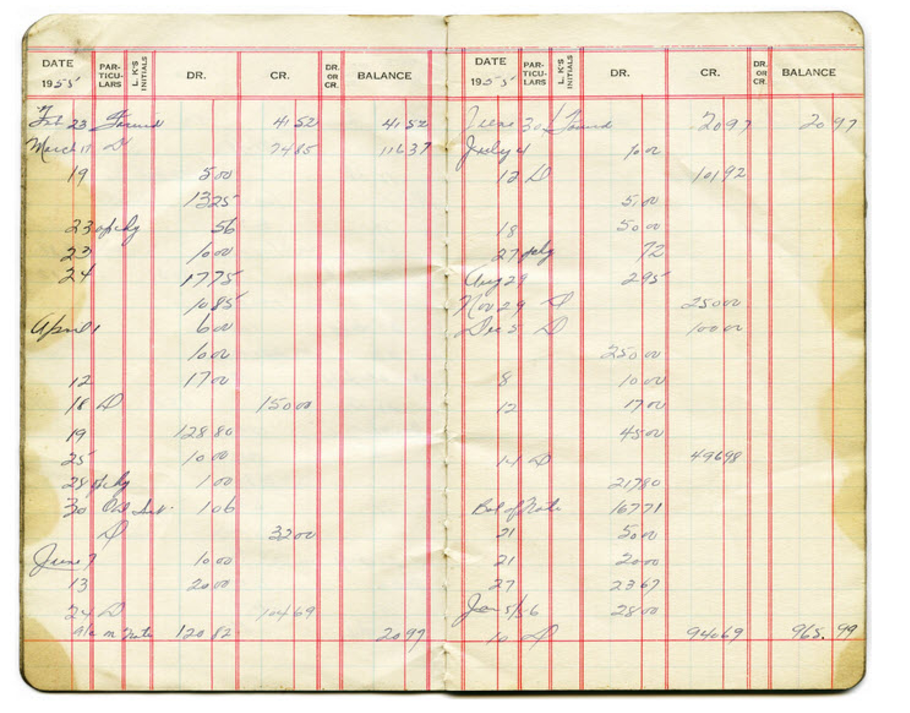 DATE PAR-TICU-LARS L. K'S INITIALS DR. CR. DR. OR CR. BALANCE
1955
Feb 23 Forward 41 52 41 52
March 17 D 74 85 116 37
19 5 00
13 25
23 56
23 10 00
24 17 75
10 85
April 1 6 00
10 00
12 17 00
18 D 150 00
19 128 80
25 10 00
28 1 00
30 1 06
D 32 00
June 7 10 00
13 20 00
24 D 104 69
Note 120 82 20 97
DATE PAR-TICU-LARS L. K'S INITIALS DR. CR. DR. OR CR. BALANCE
1955
June 30 Forward 20 97 20 97
July 4 10 00
12 D 101 92
5 00
18 50 00
27 72
Aug 29 2 95
Nov 29 D 250 00
Dec 5 D 100 00
250 00
8 10 00
12 17 00
45 00
14 D 496 98
217 80
Bal of Note 167 71
21 50 00
21 20 00
27 23 67
Jan 5/56 28 00
10 D 940 69 965. 99